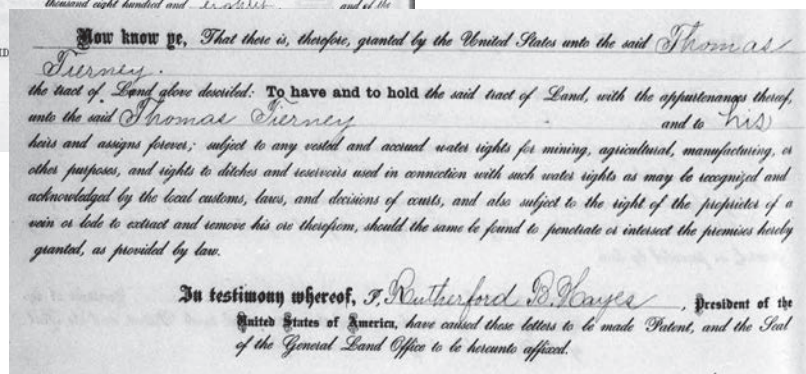 thousand eight hundred and eighty and of the
ID
Now know ye, That there is, therefore, granted by the United States unto the said Thomas
Tierney.
the tract of Land above described: To have and to hold the said tract of Land, with the appurtenances thereof,
unto the said Thomas Tierney and to his
heirs and assigns forever; subject to any vested and accrued water rights for mining, agricultural, manufacturing, or
other purposes, and rights to ditches and reservoirs used in connection with such water rights as may be recognized and
acknowledged by the local customs, laws, and decisions of courts, and also subject to the right of the proprietor of a
vein or lode to extract and remove his ore therefrom, should the same be found to penetrate or intersect the premises hereby
granted, as provided by law.
In testimony whereof, I, Rutherford B. Hayes, President of the
United States of America, have caused these letters to be made Patent, and the Seal
of the General Land Office to be hereunto affixed.